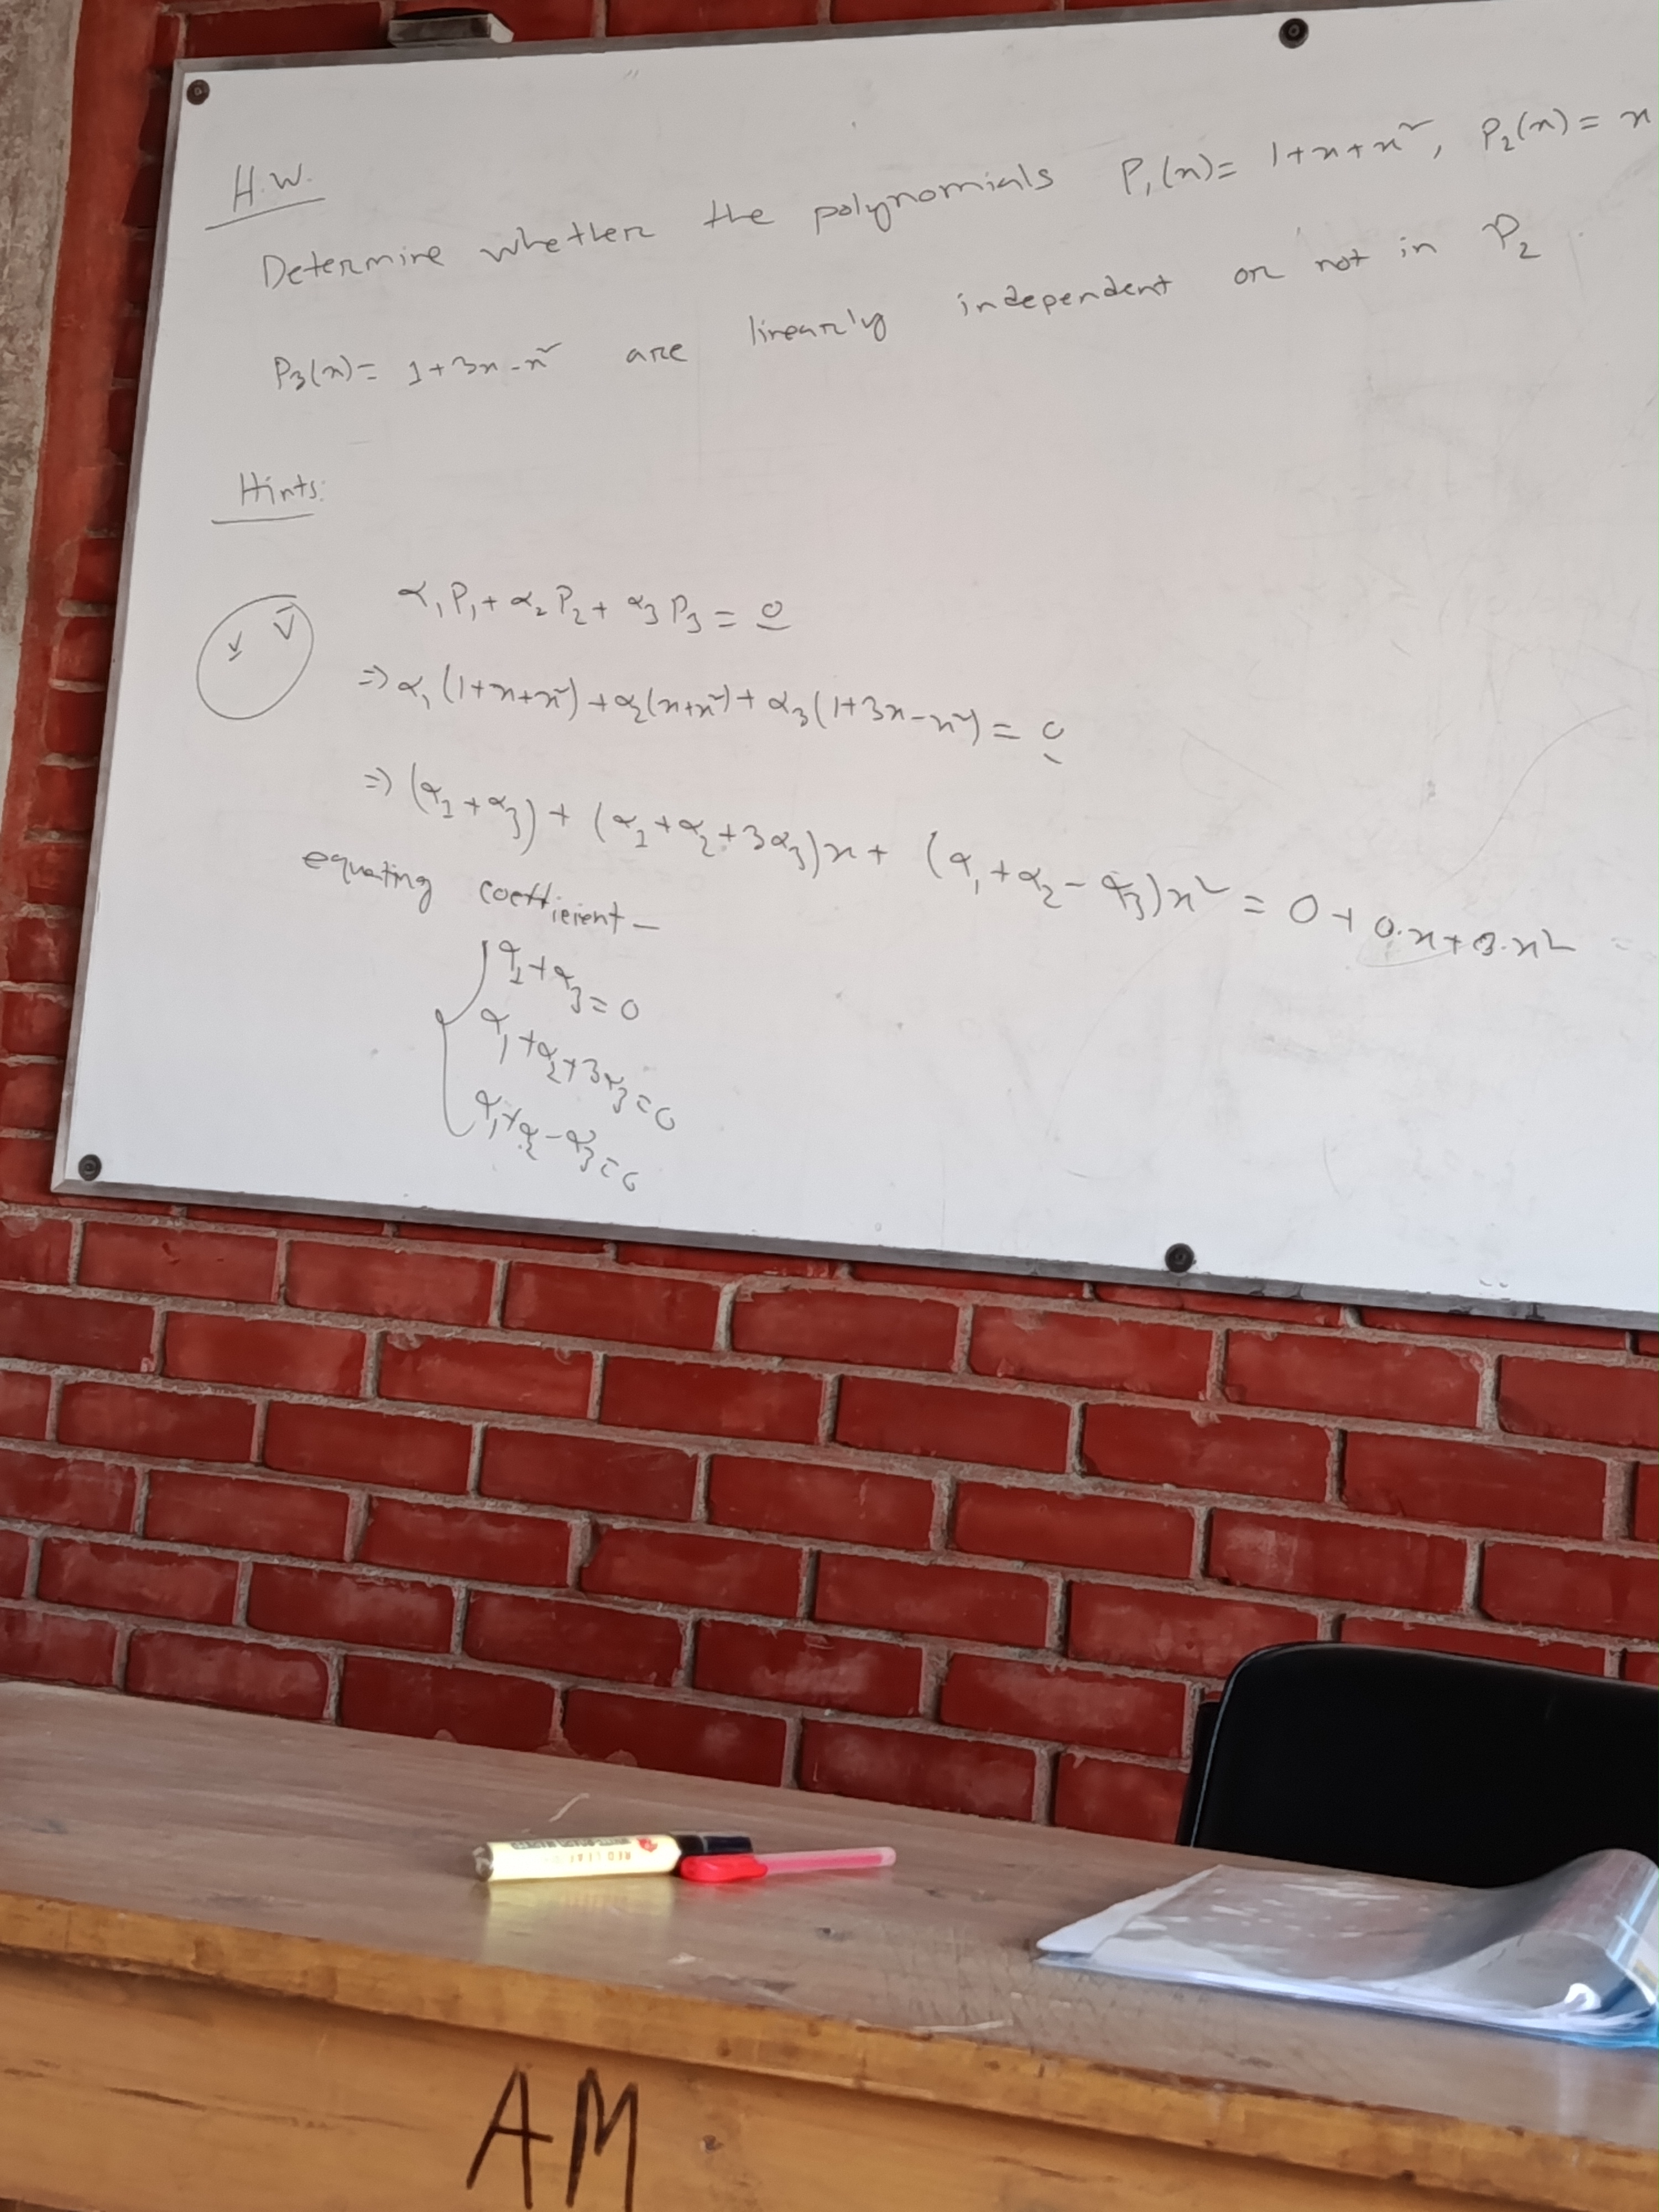 H.W.
Determine whether the polynomials P₁(x) = 1+x+x², P₂(x) = x
P₃(x) = 1+3x-x² are linearly independent or not in P₂
Hints:
α₁P₁ + α₂P₂ + α₃P₃ = 0
v V
⇒ α₁(1+x+x²) + α₂(x+x²) + α₃(1+3x-x²) = 0
⇒ (α₁+α₃) + (α₁+α₂+3α₃)x + (α₁+α₂-α₃)x² = 0 + 0.x + 0.x²
equating coefficient –
α₁+α₃ = 0
α₁+α₂+3α₃ = 0
α₁+α₂-α₃ = 0
RED LEAF
AM